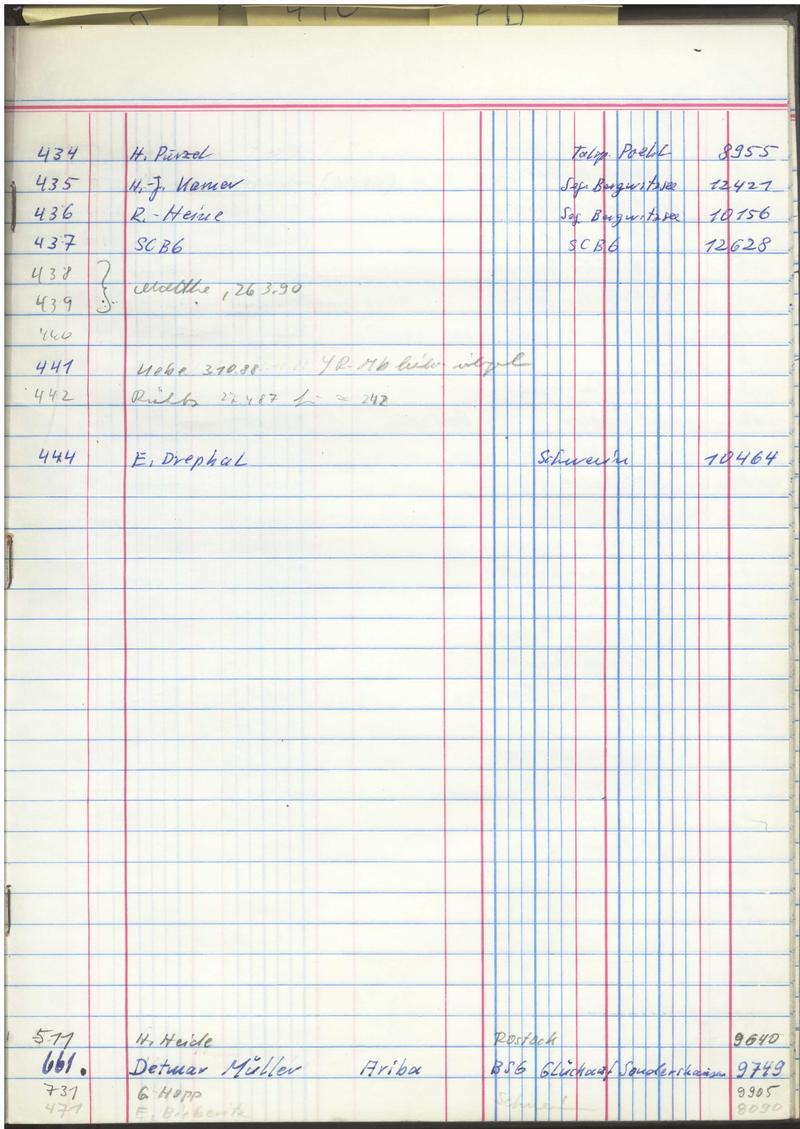 434 H. Pürzel Talsp. Poehl 8955
435 H.-J. Kamer Sgf. Bergwitzsee 12421
436 R.-Heine Sgf. Bergwitzsee 10156
437 SCBG SCBG 12628
438
439 , 26 3.90
440
441 3.10.88 YR-
442 22.4.87 = 242
444 E. Drephal Schwerin 10464
511 H. Heide Rostock 9640
661. Detmar Müller Ariba BSG Glückauf Sondershausen 9749
731 G. Hopp 9905
471 E. 8090